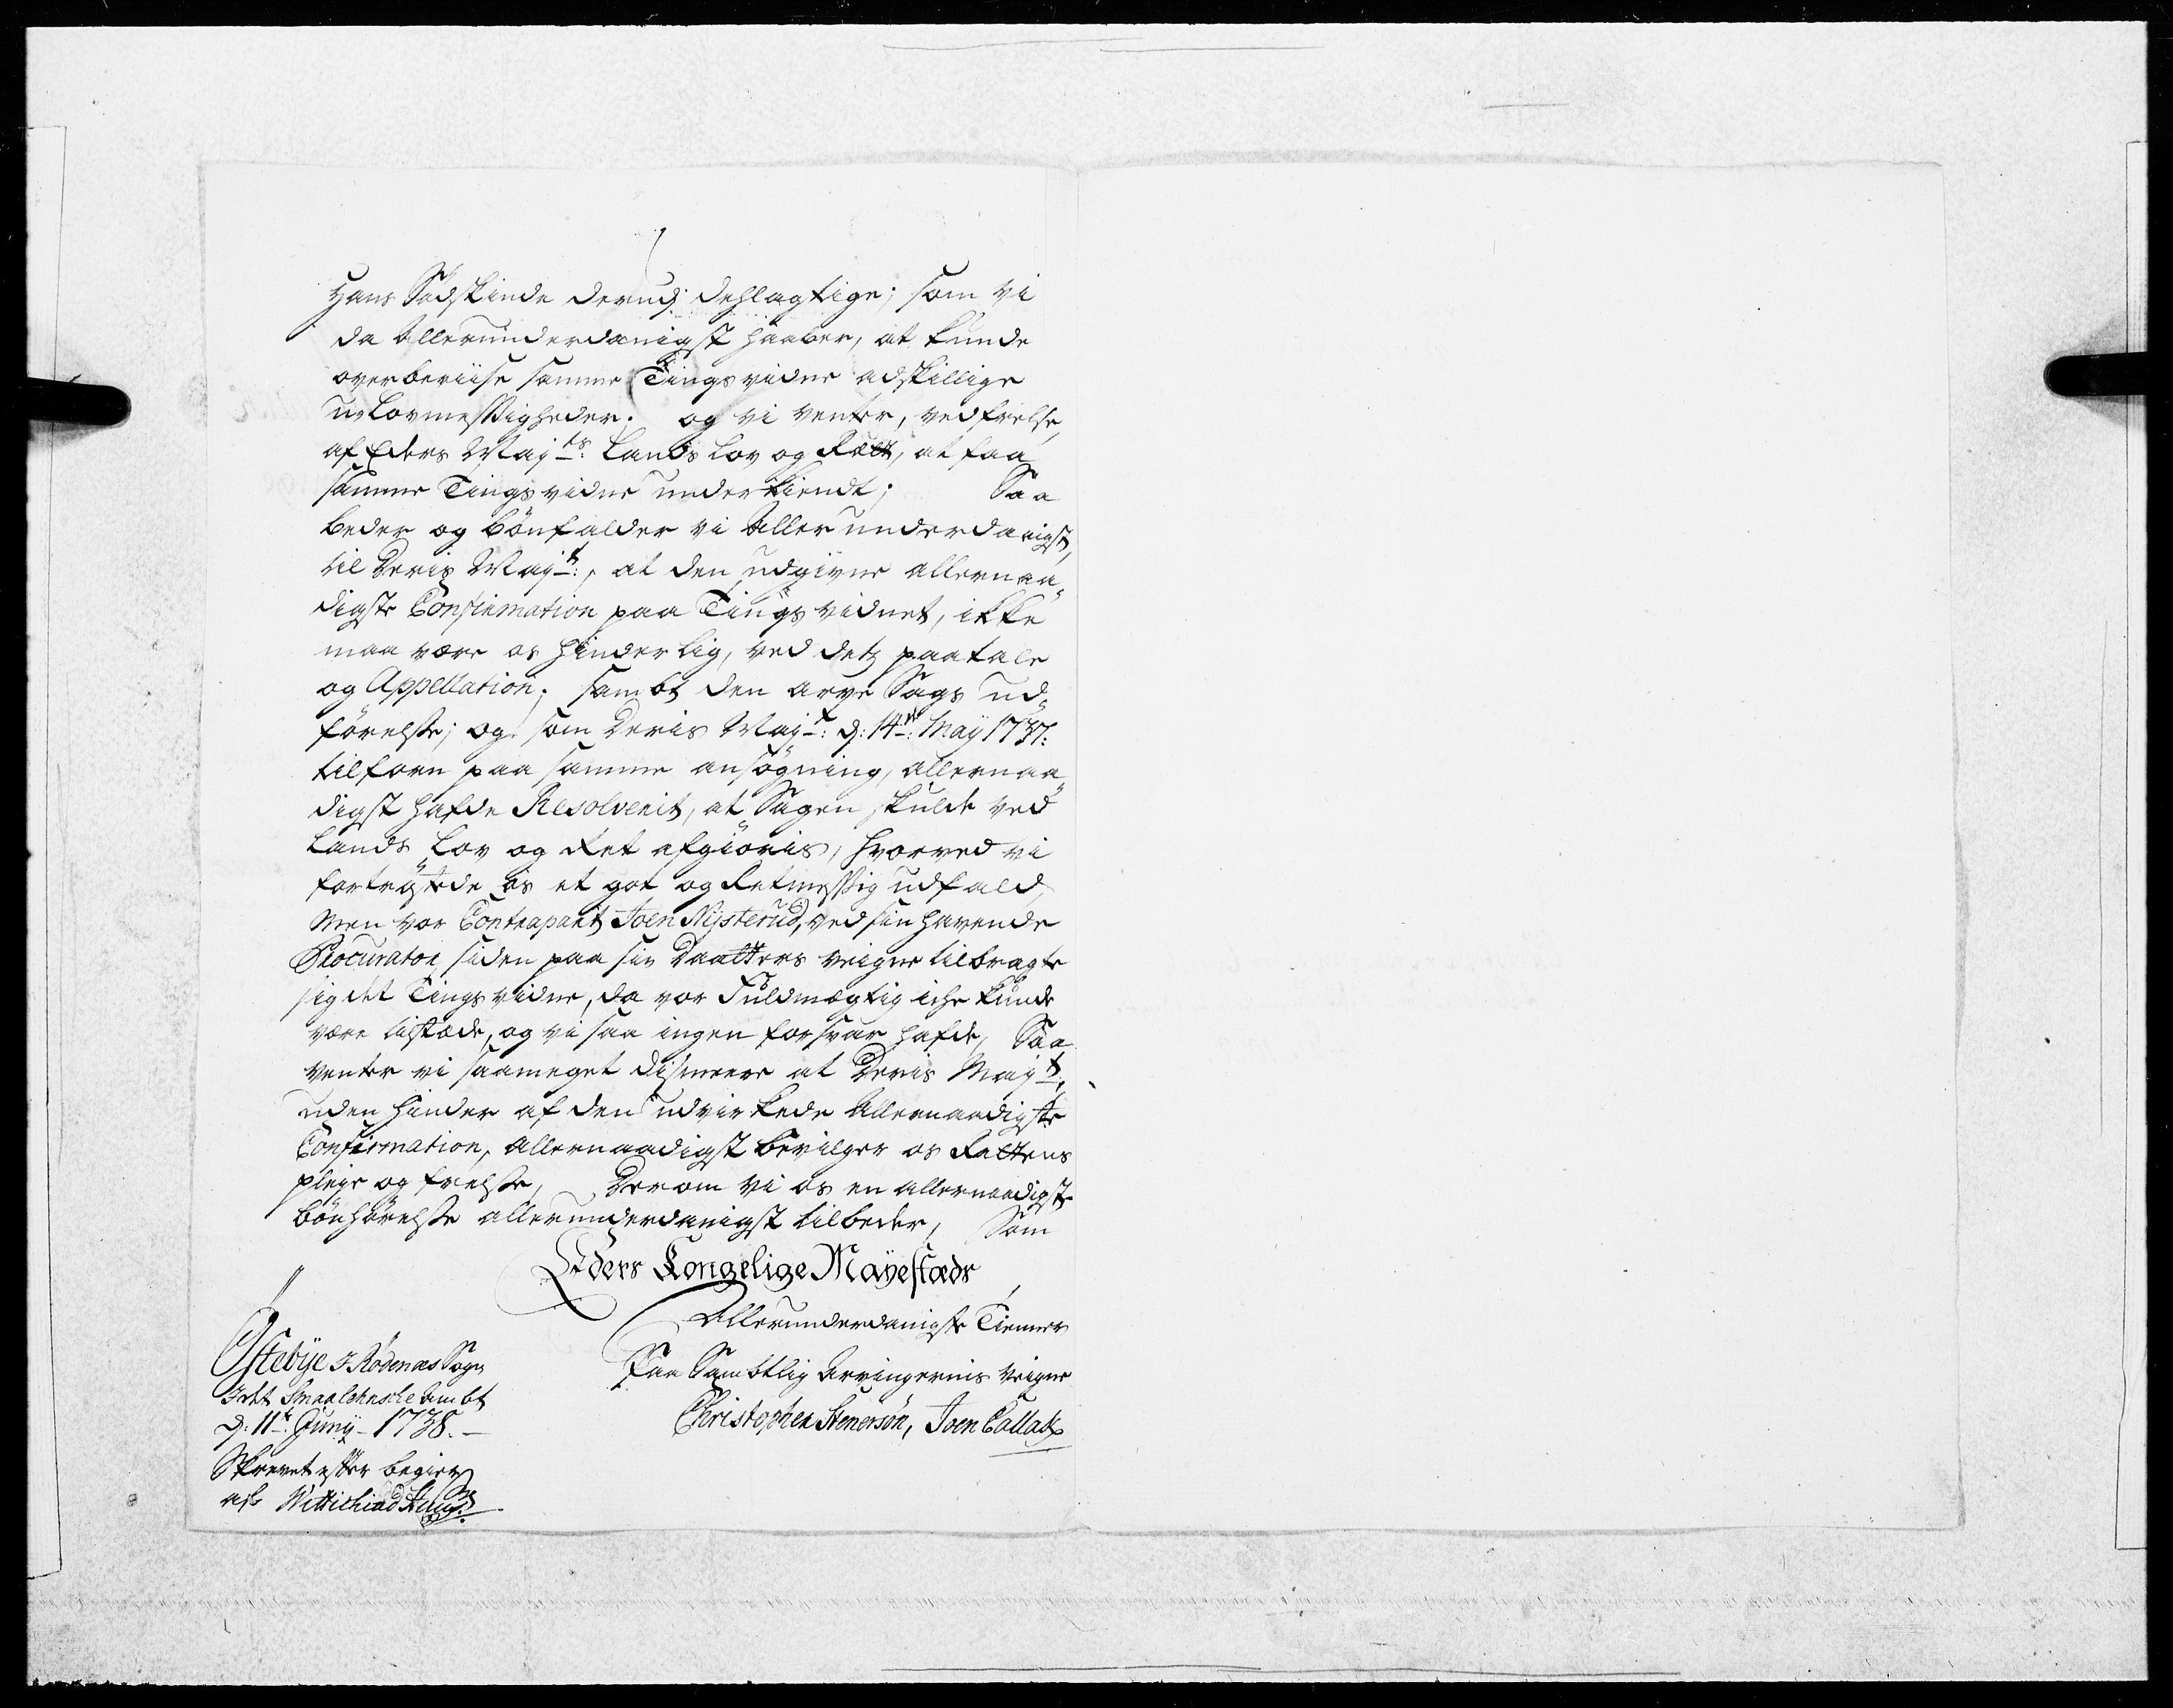 Hans Sødskinde derudj dehlagtige; som vi
da Allerunderdanigst haaber, at kunde
overbeviise samme Tingsvidne adskillige
u-Lovmessigheder. og vi venter, ved frelse
af Eders Mayts: Lands Lov og Rætt, at faa
samme Tingsvidne underkiendt; Saa
beder og bönfalder vi Allerunderdanigst,
til Deris Mayt:, at den udgivne allernaa„
digste Confirmation paa Tingsvidnet, ikke
maa være os hinderlig, ved detz paatale
og Appellation; sambt den arve Sags ud„
førelse; og som Deris Mayt: d: 14de: Maÿ 1737:
tilforn paa samme ansøgning, allernaa„
digst hafde Resolverit, at Sagen skulde ved
Lands Lov og Ret afgiøris, hvorved vi
fortrøstede os et got og Retmessig udfald,
Men vor Contrapart Joen Nÿsterud, ved sin havende
Procurator, siden paa sin Daatters veigne tilbragte
sig det Tingsvidne, da vor Fuldmægtig iche kunde
være tilstæde, og vi saa ingen forsvar hafde, Saa
venter vi saameget dismeere at Deris Mayt:,
uden hinder af den udvirkede Allernaadigste
Confirmation, allernaadigst bevilger os Rettens
pleye og frelse, Derom vi os en allernaadigste
bönhörelse allerunderdanigst tilbeder, Som
Eders Kongelige Mayestæds
Allerunderdanigste Tienner
Paa Sambtlig Arvingernis veigne
Christopher Stenersön, Joen Callak
Ostebÿe I Rødenæs Sogn
I det Smaalehnske Ambt
d: 11te: Junÿ 1738.
Skrevet efter begier
af Wittichind